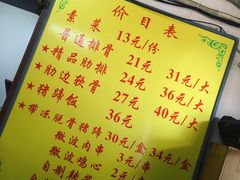 价目表
素菜 13元/份
普通排骨 21元 31元/大
★精品肋排 24元 36元/大
★肋边软骨 27元 40元/大
★猪蹄饭 36元
★带冻脱骨猪蹄 30元/盒 34元/盒
微波肉串 3元/串
微波鸡心 2元/
自制辣